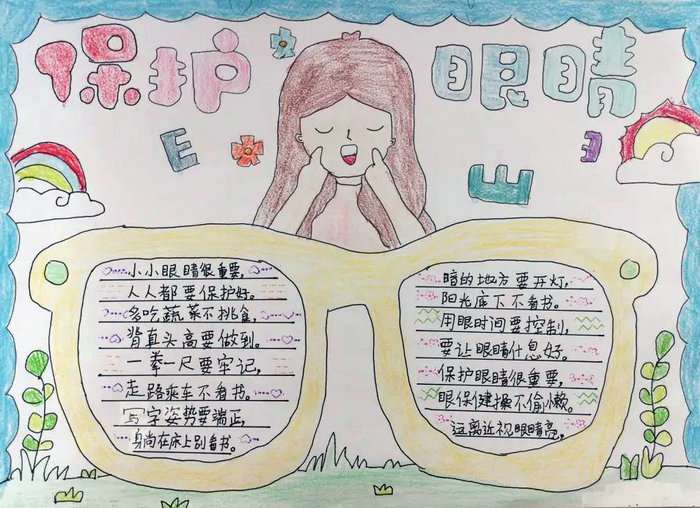 保护眼睛
E E E
小小眼睛很重要,
人人都要保护好。
多吃蔬菜不挑食,
背直头高要做到。
一拳一尺要牢记,
走路乘车不看书。
写字姿势要端正,
身尚在床上别看书。
暗的地方要开灯,
阳光底下不看书。
用眼时间要控制,
要让眼睛休息好。
保护眼睛很重要,
眼保健操不偷懒。
远离近视眼睛亮,